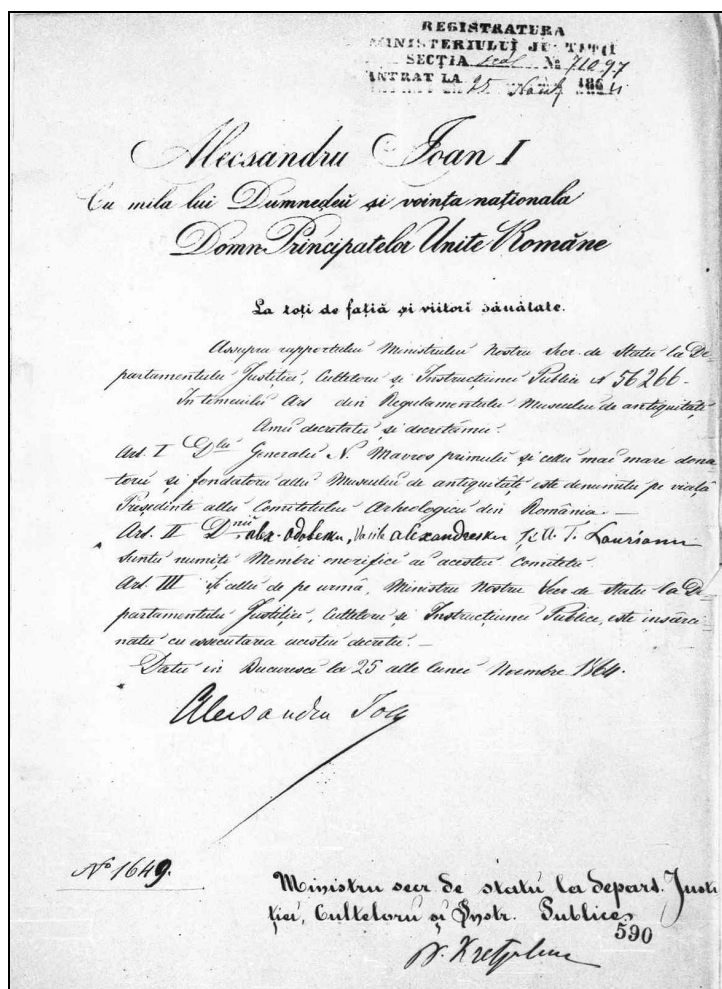 REGISTRATURA
MINISTERIULUĬ JUSTIȚIĬ
SECȚIA Scol № 71097
INTRAT LA 25 Noemb 1864
Alecsandru Ioan I
Cu mila lui Dumnedeŭ și voința naționala
Domn Principatelor Unite Române
La toți de față și viitori sănătate.
Assupra rapportului Ministrului Nostru Secr. de Statu la De-
partamentulu Justiției, Culteloru și Instrucțiunei Publice N 56266.
In temeiulu Art din Regulamentulu Museului de antiquități
Amu decretatu și decretămu:
Art. I Dlu Generalu N. Mavros primulu și cellu mai mare dona
toru și fondatoru allu Museului de antiquități este denumitu pe viață
Președinte allu Comitetului Arheologicu din România. —
Art. II Dnii alex. Odobescu, Vasile alexandrescu și A. T. Laurianu
suntu numiți Membri onorifici ai acestui Comitetu.
Art. III și cellu de pe urmă, Ministru Nostru Secr de Statu la De
partamentulu Justiției, Culteloru si Instrucțiunei Publice, este insărci
natu cu essecutarea acestui decretu. —
Datu in Bucuresci la 25 alle lunei Noembre 1864.
Alecsandru Ioan
No 1649.
Ministru secr. de statu la depart. Justi
ției, Culteloru și Instr. Publice,
590